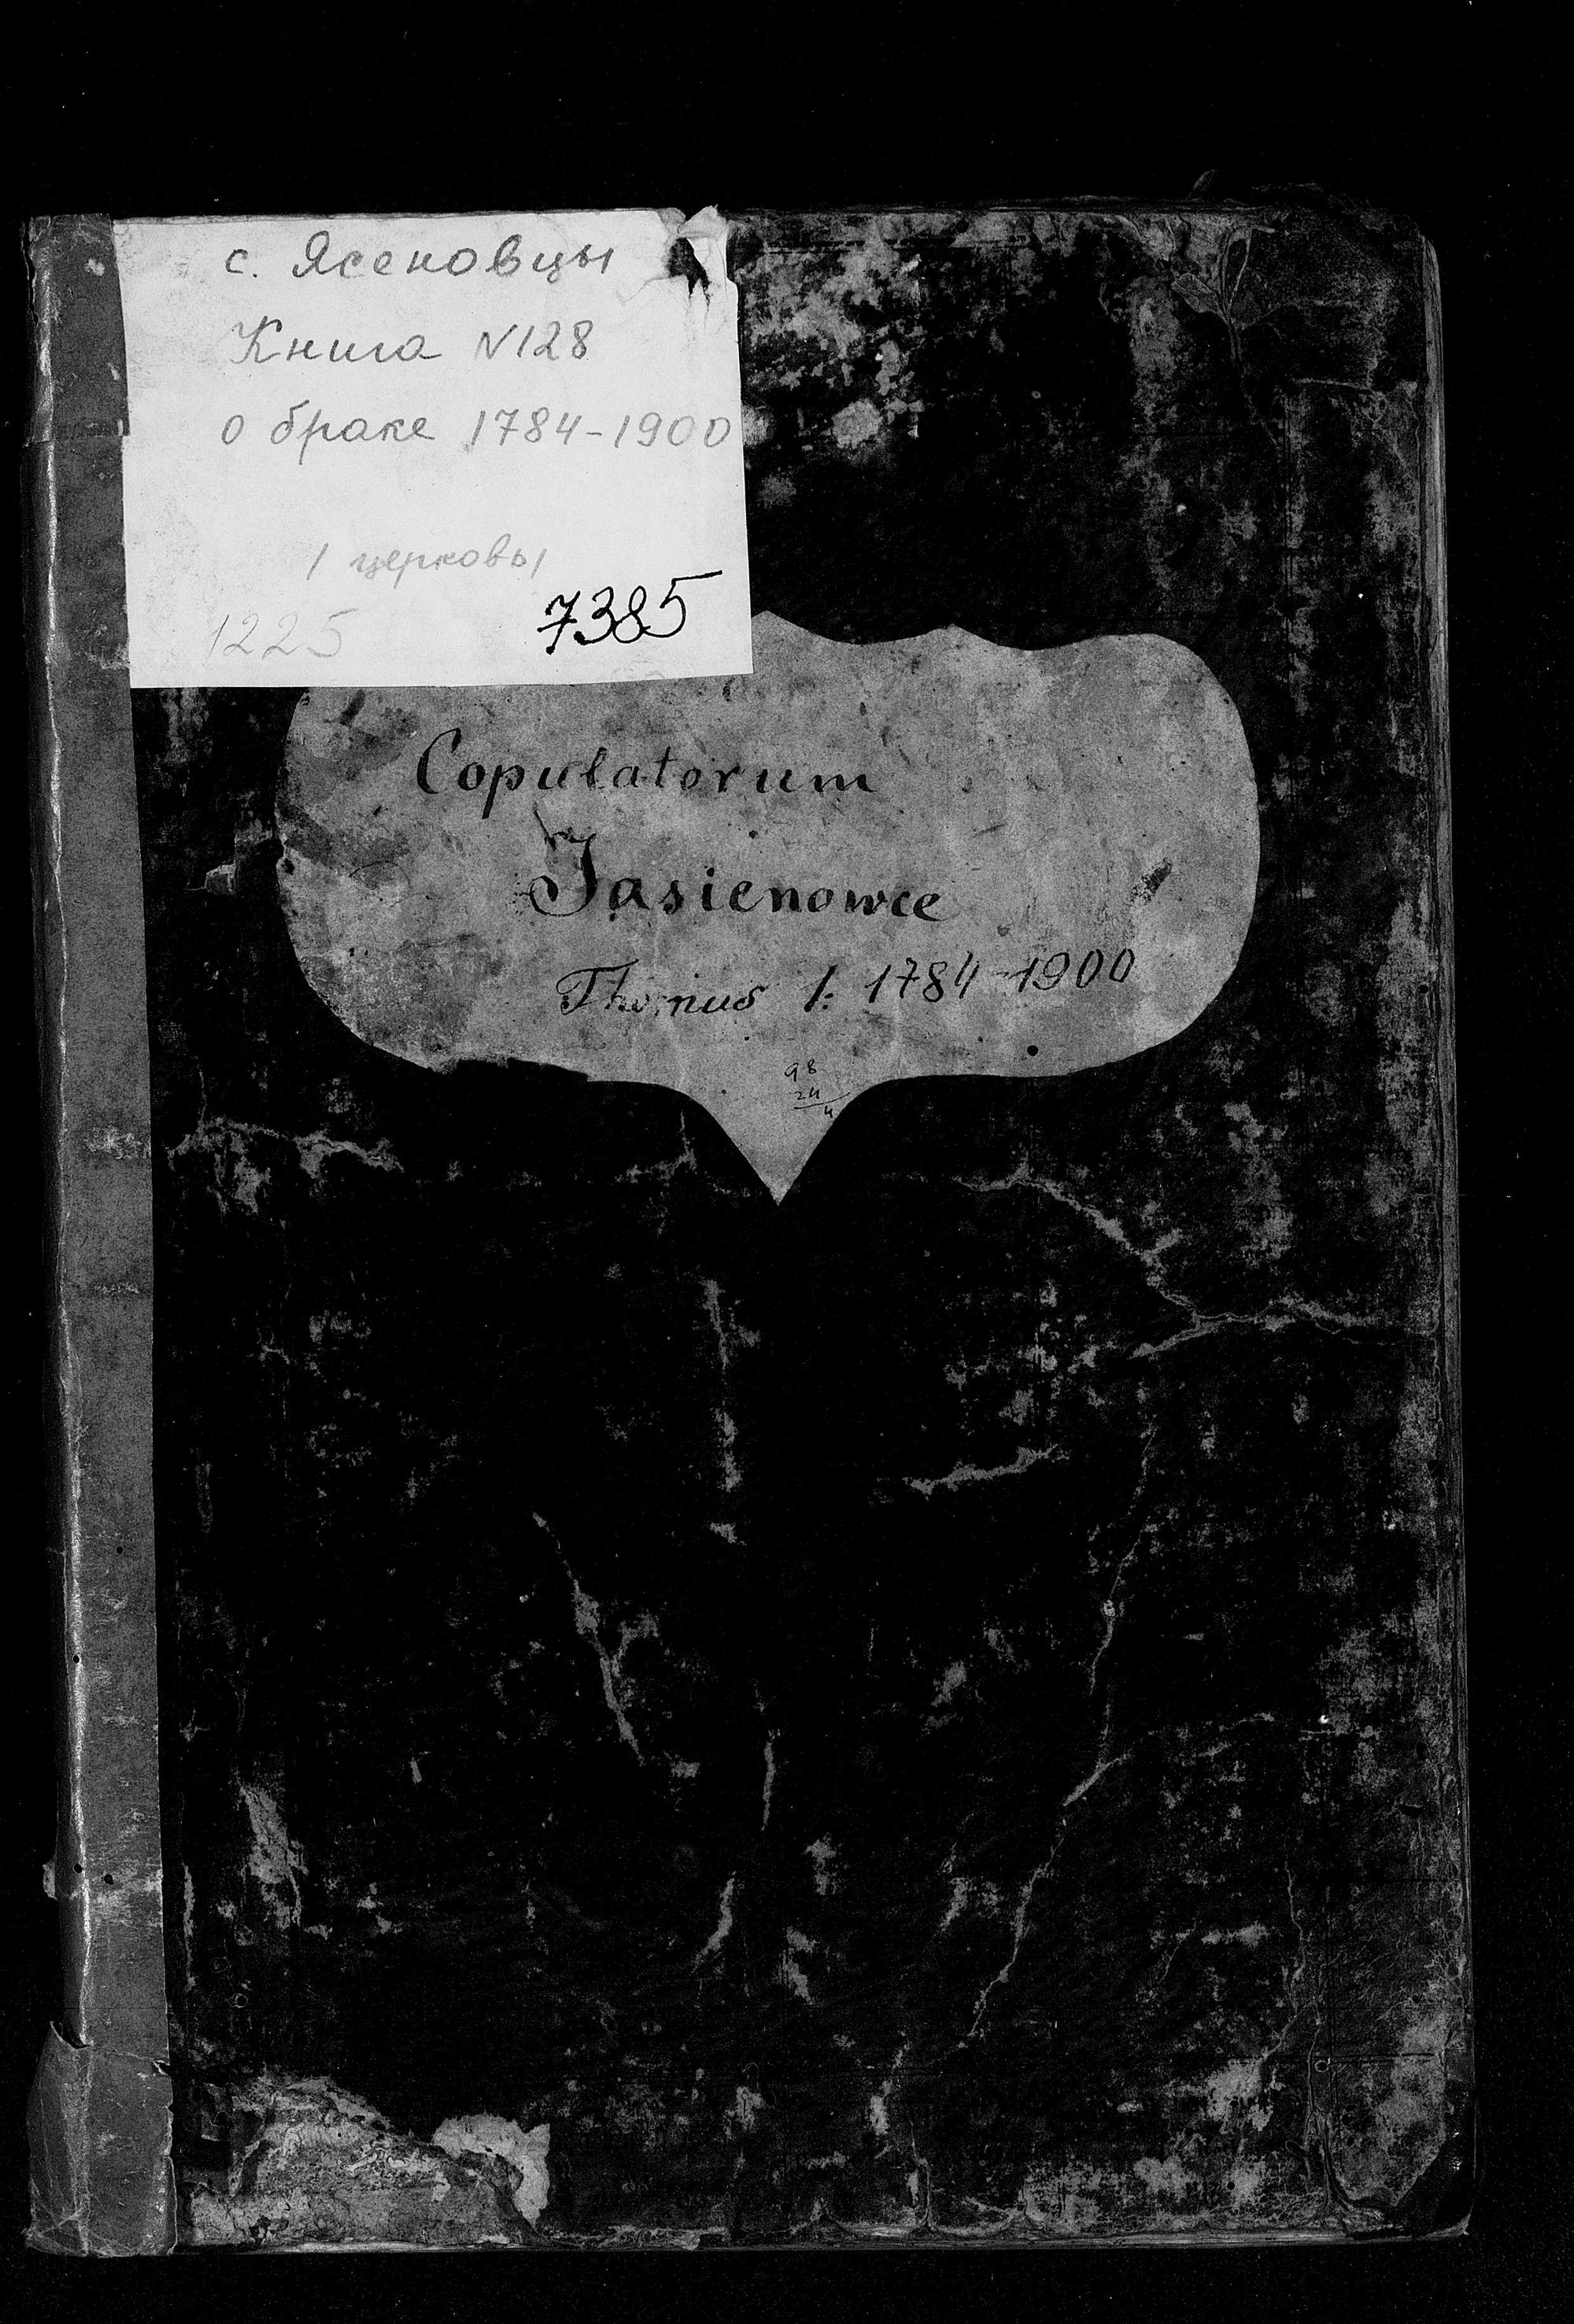 с. Ясеновцы
Книга N128
о браке 1784-1900
/ церковь /
1225 7385
Copulatorum
Jasienowce
Thomus 1: 1784-1900
98
24
4